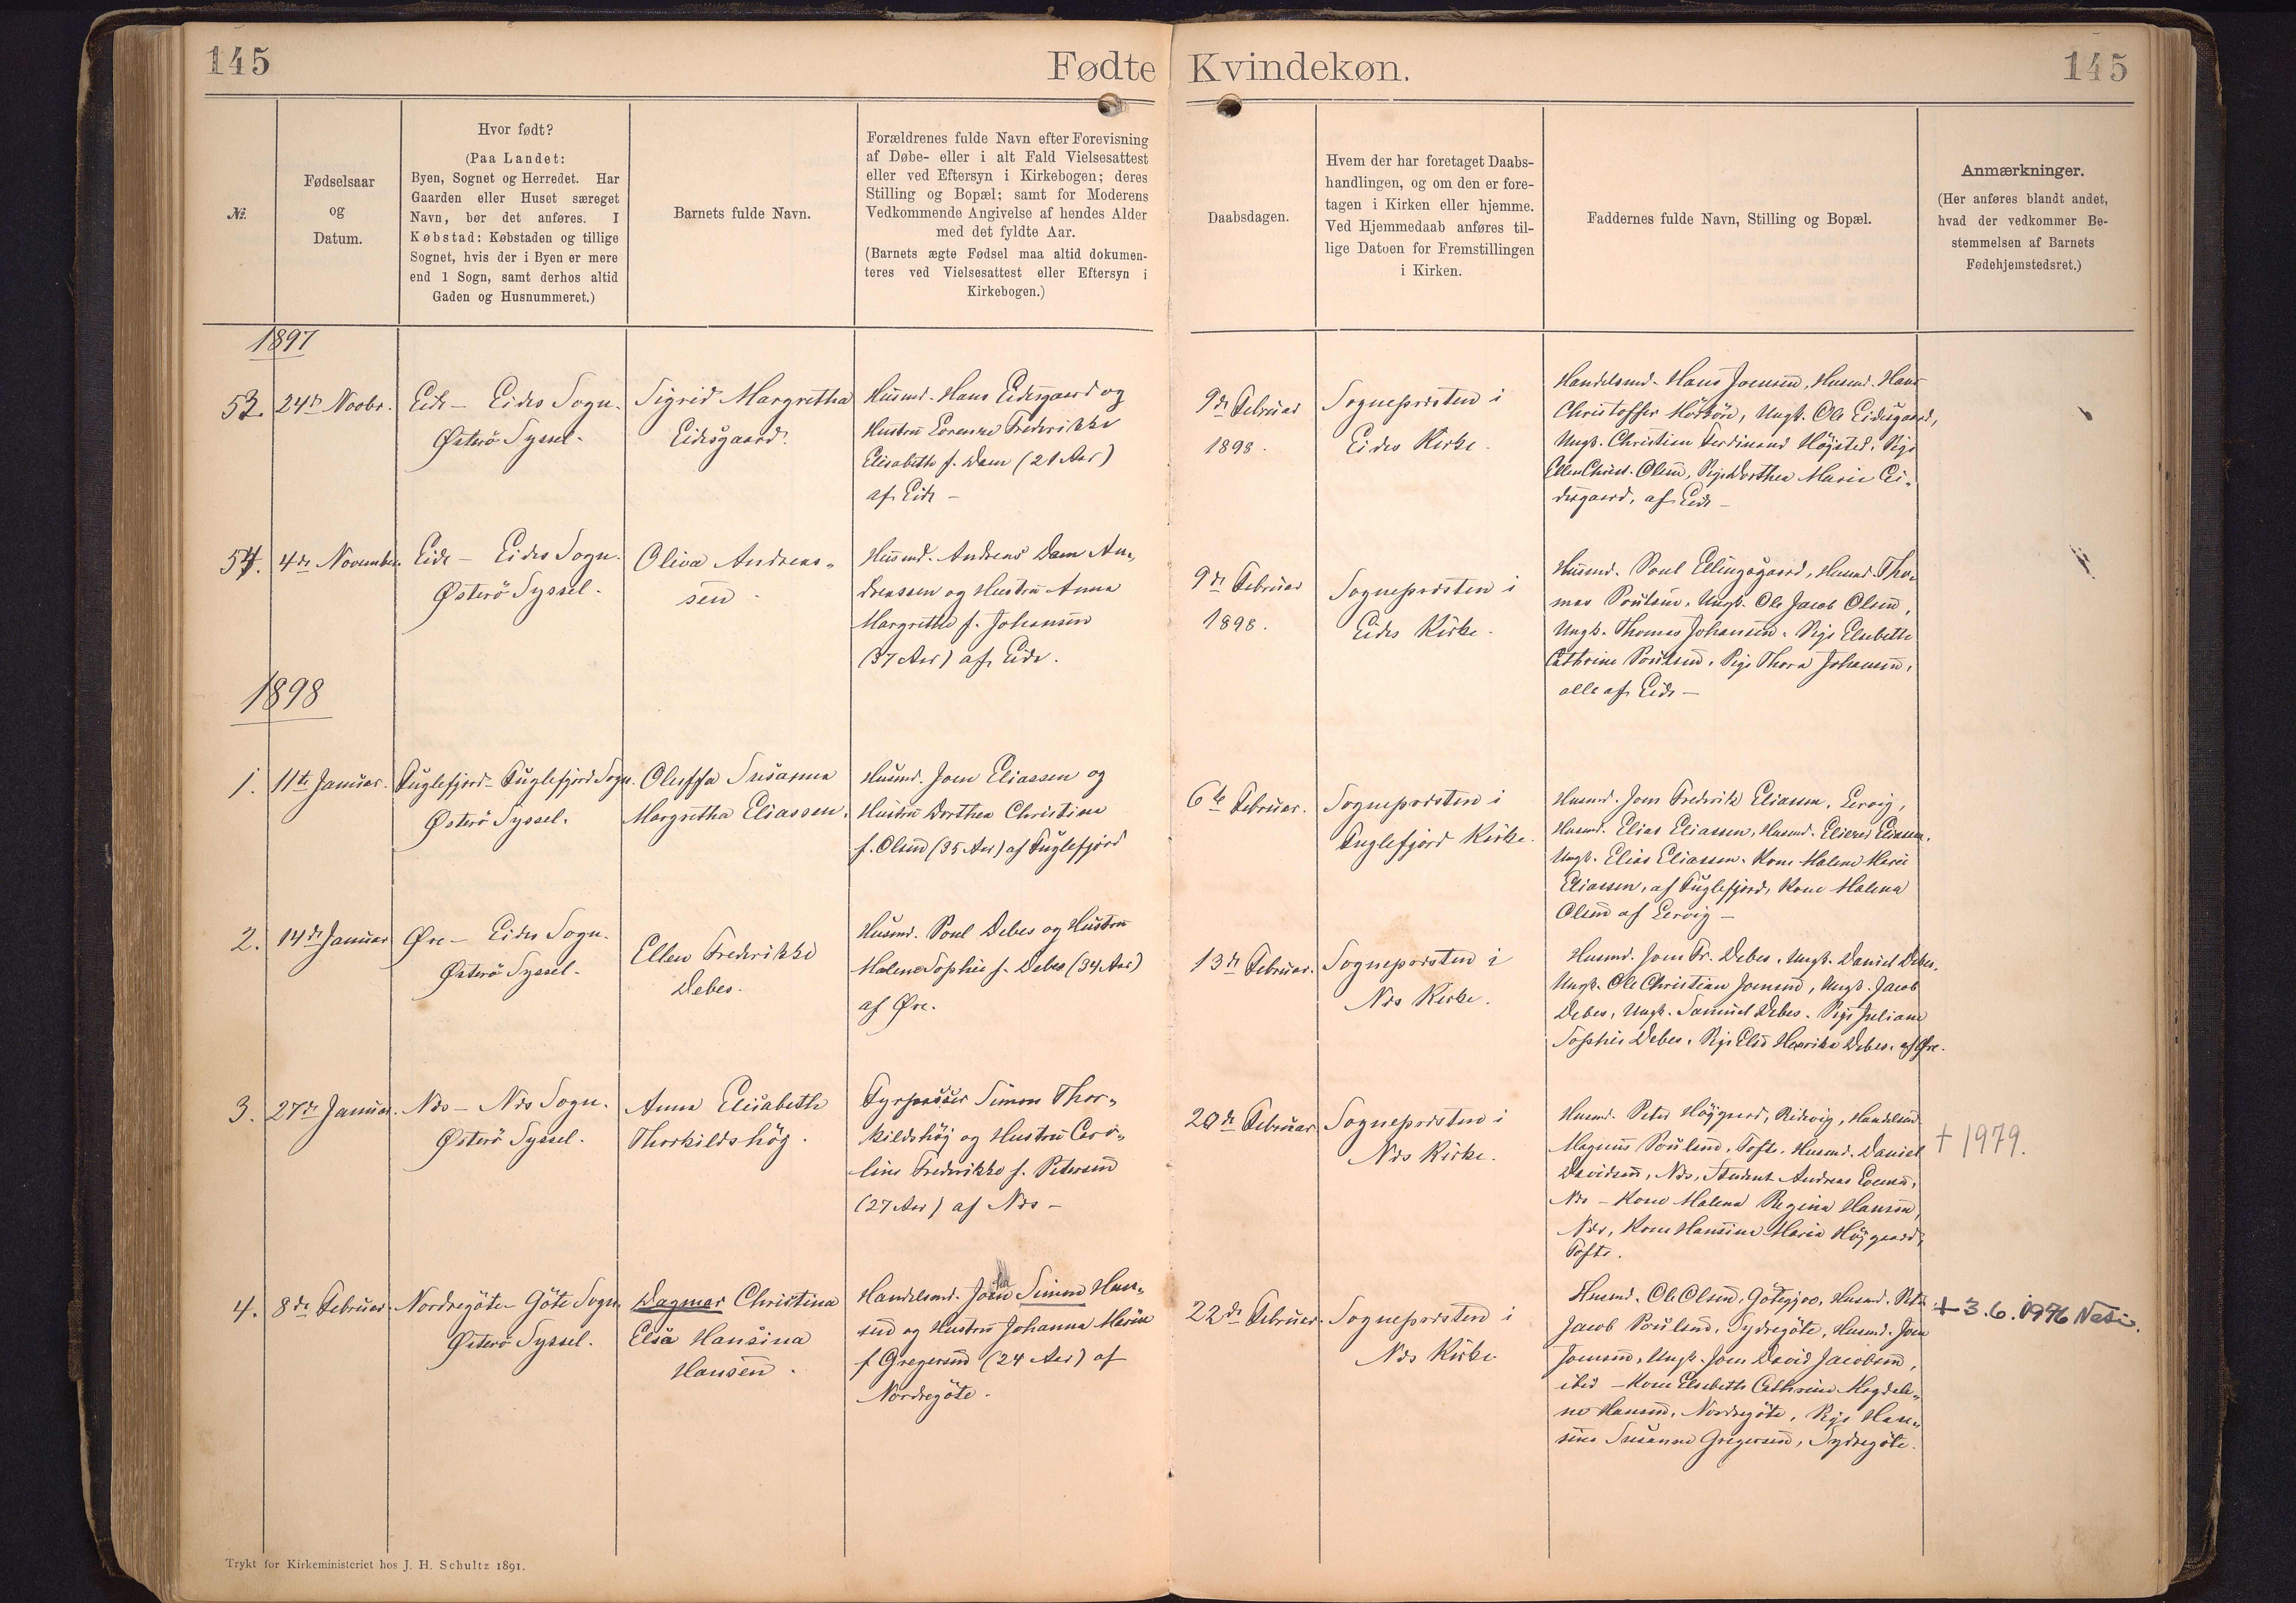 145
Fødte Kvindekøn.
145
№.
Fødselsaar
og
Datum.
Hvor født?
(Paa Landet:
Byen, Sognet og Herredet. Har
Gaarden eller Huset særeget
Navn, bør det anføres. I
Købstad: Købstaden og tillige
Sognet, hvis der i Byen er mere
end 1 Sogn, samt derhos altid
Gaden og Husnummeret.)
Barnets fulde Navn.
Forældrenes fulde Navn efter Forevisning
af Døbe- eller i alt Fald Vielsesattest
eller ved Eftersyn i Kirkebogen; deres
Stilling og Bopæl; samt for Moderens
Vedkommende Angivelse af hendes Alder
med det fyldte Aar.
(Barnets ægte Fødsel maa altid dokumen-
teres ved Vielsesattest eller Eftersyn i
Kirkebogen.)
Daabsdagen.
Hvem der har foretaget Daabs-
handlingen, og om den er fore-
tagen i Kirken eller hjemme.
Ved Hjemmedaab anføres til-
lige Datoen for Fremstillingen
i Kirken.
Faddernes fulde Navn, Stilling og Bopæl.
Anmærkninger.
(Her anføres blandt andet,
hvad der vedkommer Be-
stemmelsen af Barnets
Fødehjemstedsret.)
1897
53.
24de Novbr.
Eide - Eides Sogn.
Østerö Syssel.
Sigrid Margretha
Eidesgaard.
Husmd. Hans Eidesgaard og
Hustru Lorenze Frederikke
Elisabeth f. Dam (21 Aar)
af Eide -
9de Februar
1898.
Sognepræsten i
Eides Kirke.
Handelsmd. Hans Joensen, Husmd. Hans
Christoffer, Ungk. Ole Eidesgaard,
Ungk. Christian Ferdinand Högsted, Pige
Ellen Christ. Olsen, Pige Dorthea Marie Ei-
desgaard, af Eide -
54.
4de November.
Eide - Eides Sogn.
Østerö Syssel.
Oliva Andreas-
sen
Husmd. Andreas Dam An-
dreassen og Hustru Anna
Margrethe f. Johansen
(37 Aar) af Eide.
9de Februar
1898.
Sognepræsten i
Eides Kirke.
Husmd. Poul Ellingsgaard, Husmd. Tho-
mas Poulsen, Ungk. Ole Jacob Olsen,
Ungk. Thomas Johansen, Pige Elsebeth
Cathrine Poulsen, Pige Thora Johansen,
alle af Eide -
1898
1.
11te Januar.
Fuglefjord - Fuglefjord Sogn.
Østerö Syssel.
Oluffa Susanna
Margretha Eliassen.
Husmd. Joen Eliassen og
Hustru Dorthea Christine
f. Olsen (35 Aar) af Fuglefjord
6te Februar.
Sognepræsten i
Fuglefjord Kirke.
Husmd. Joen Frederik Eliassen, Lervig,
Husmd. Elias Eliassen, Husmd. Eliassen.
Ungk. Elias Eliassen. Kone Malene Marie
Eliassen, af Fuglefjord, Kone Malena
Olsen af Lervig -
2.
14de Januar
Øre - Eides Sogn.
Østerö Syssel.
Ellen Frederikke
Debes.
Husmd. Poul Debes og Hustru
Malene Sophie f. Debes (34 Aar)
af Øre.
13de Februar.
Sognepræsten i
Næs Kirke.
Husmd. Joen Fr. Debes, Ungk. Daniel Debes,
Ungk. Ole Christian Joensen, Ungk. Jacob
Debes, Ungk. Samuel Debes. Pige Juliane
Sophie Debes, Pige Else Henrike Debes, af Øre.
3.
27de Januar.
Næs - Næs Sogn.
Østerö Syssel.
Anna Elisabeth
Thorkildshög.
Fyrpasser Simon Thor-
kildshöj og Hustru Caro-
line Frederikke f. Petersen
(27 Aar) af Næs -
20de Februar
Sognepræsten i
Næs Kirke.
Husmd. Peter Höjgaard, Ridevig, Handelsmd.
Magnus Poulsen, Tofte, Husmd. Daniel
Davidsen, Næs, Student Andreas
Næs - Kone Malena Regina Hansen,
Næs, Kone Hansine Maria Höjgaard,
Tofte.
+ 1979.
4.
8de Februar.
Nordregöte - Göte Sogn.
Østerö Syssel.
Dagmar Christina
Elsa Hansina
Hansen.
Handelsmd. Simon Han-
sen og Hustru Johanna Marie
f. Gregersen (24 Aar) af
Nordregöte.
22de Februar.
Sognepræsten i
Næs Kirke
Husmd. Ole Olsen, Götegjov, Husmd. Peter
Jacob Poulsen, Sydregöte, Husmd. Joen
Joensen, Ungk. Joen David Jacobsen,
ibid - Kone Elsebeth Cathrine Magdale-
ne Hansen, Nordregöte, Pige Han-
sine Susanne Gregersen, Sydregöte.
+ 3.6.1976 Nesi.
Trykt for Kirkeministeriet hos J. H. Schultz 1891.